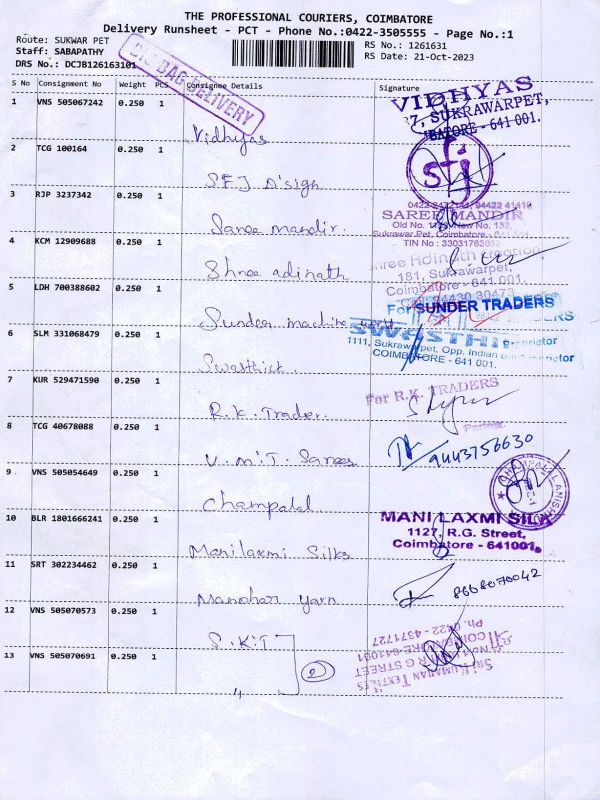 THE PROFESSIONAL COURIERS, COIMBATORE
Delivery Runsheet - PCT - Phone No.:0422-3505555 - Page No.:1
Route: SUKWAR PET
RS No.: 1261631
Staff: SABAPATHY
RS Date: 21-Oct-2023
DRS No.: DCJB126163101
BIG BAG DELIVERY
S No Consignment No Weight PCS Consignee Details Signature
1 VNS 505067242 0.250 1 Vidhyas
VIDHYAS
37, SUKRAWARPET,
COIMBATORE - 641 001.
2 TCG 100164 0.250 1 S.F.J D'sign
sfj
3 RJP 3237342 0.250 1 Saree mandir.
SAREE MANDIR
Sukrawar Pet, Coimbatore - 641 001
4 KCM 12909688 0.250 1 Shree adinath
Shree Adinath Creation
181, Sukrawarpet,
Coimbatore - 641 001
5 LDH 700388602 0.250 1 Sunder machine
For SUNDER TRADERS
6 SLM 331068479 0.250 1 Swasthick.
SWASTHI
1111, Sukrawarpet, Opp. Indian
COIMBATORE - 641 001.
Proprietor
7 KUR 529471590 0.250 1 R.K. Trader.
For R.K. TRADERS
Partner
8 TCG 40678088 0.250 1 U.M.T. Sarees
9443756630
9 VNS 505054649 0.250 1 Champalal
10 BLR 1801666241 0.250 1 Manilaxmi Silks
MANI LAXMI SILK
1127, R.G. Street,
Coimbatore - 641001.
11 SRT 302234462 0.250 1 Manohari yarn
8608070042
12 VNS 505070573 0.250 1 S.K.T
13 VNS 505070691 0.250 1 "
2
SRI KUMARAN TEXTILES
R G STREET
COIMBATORE-641001
Ph. 0422 - 4371727